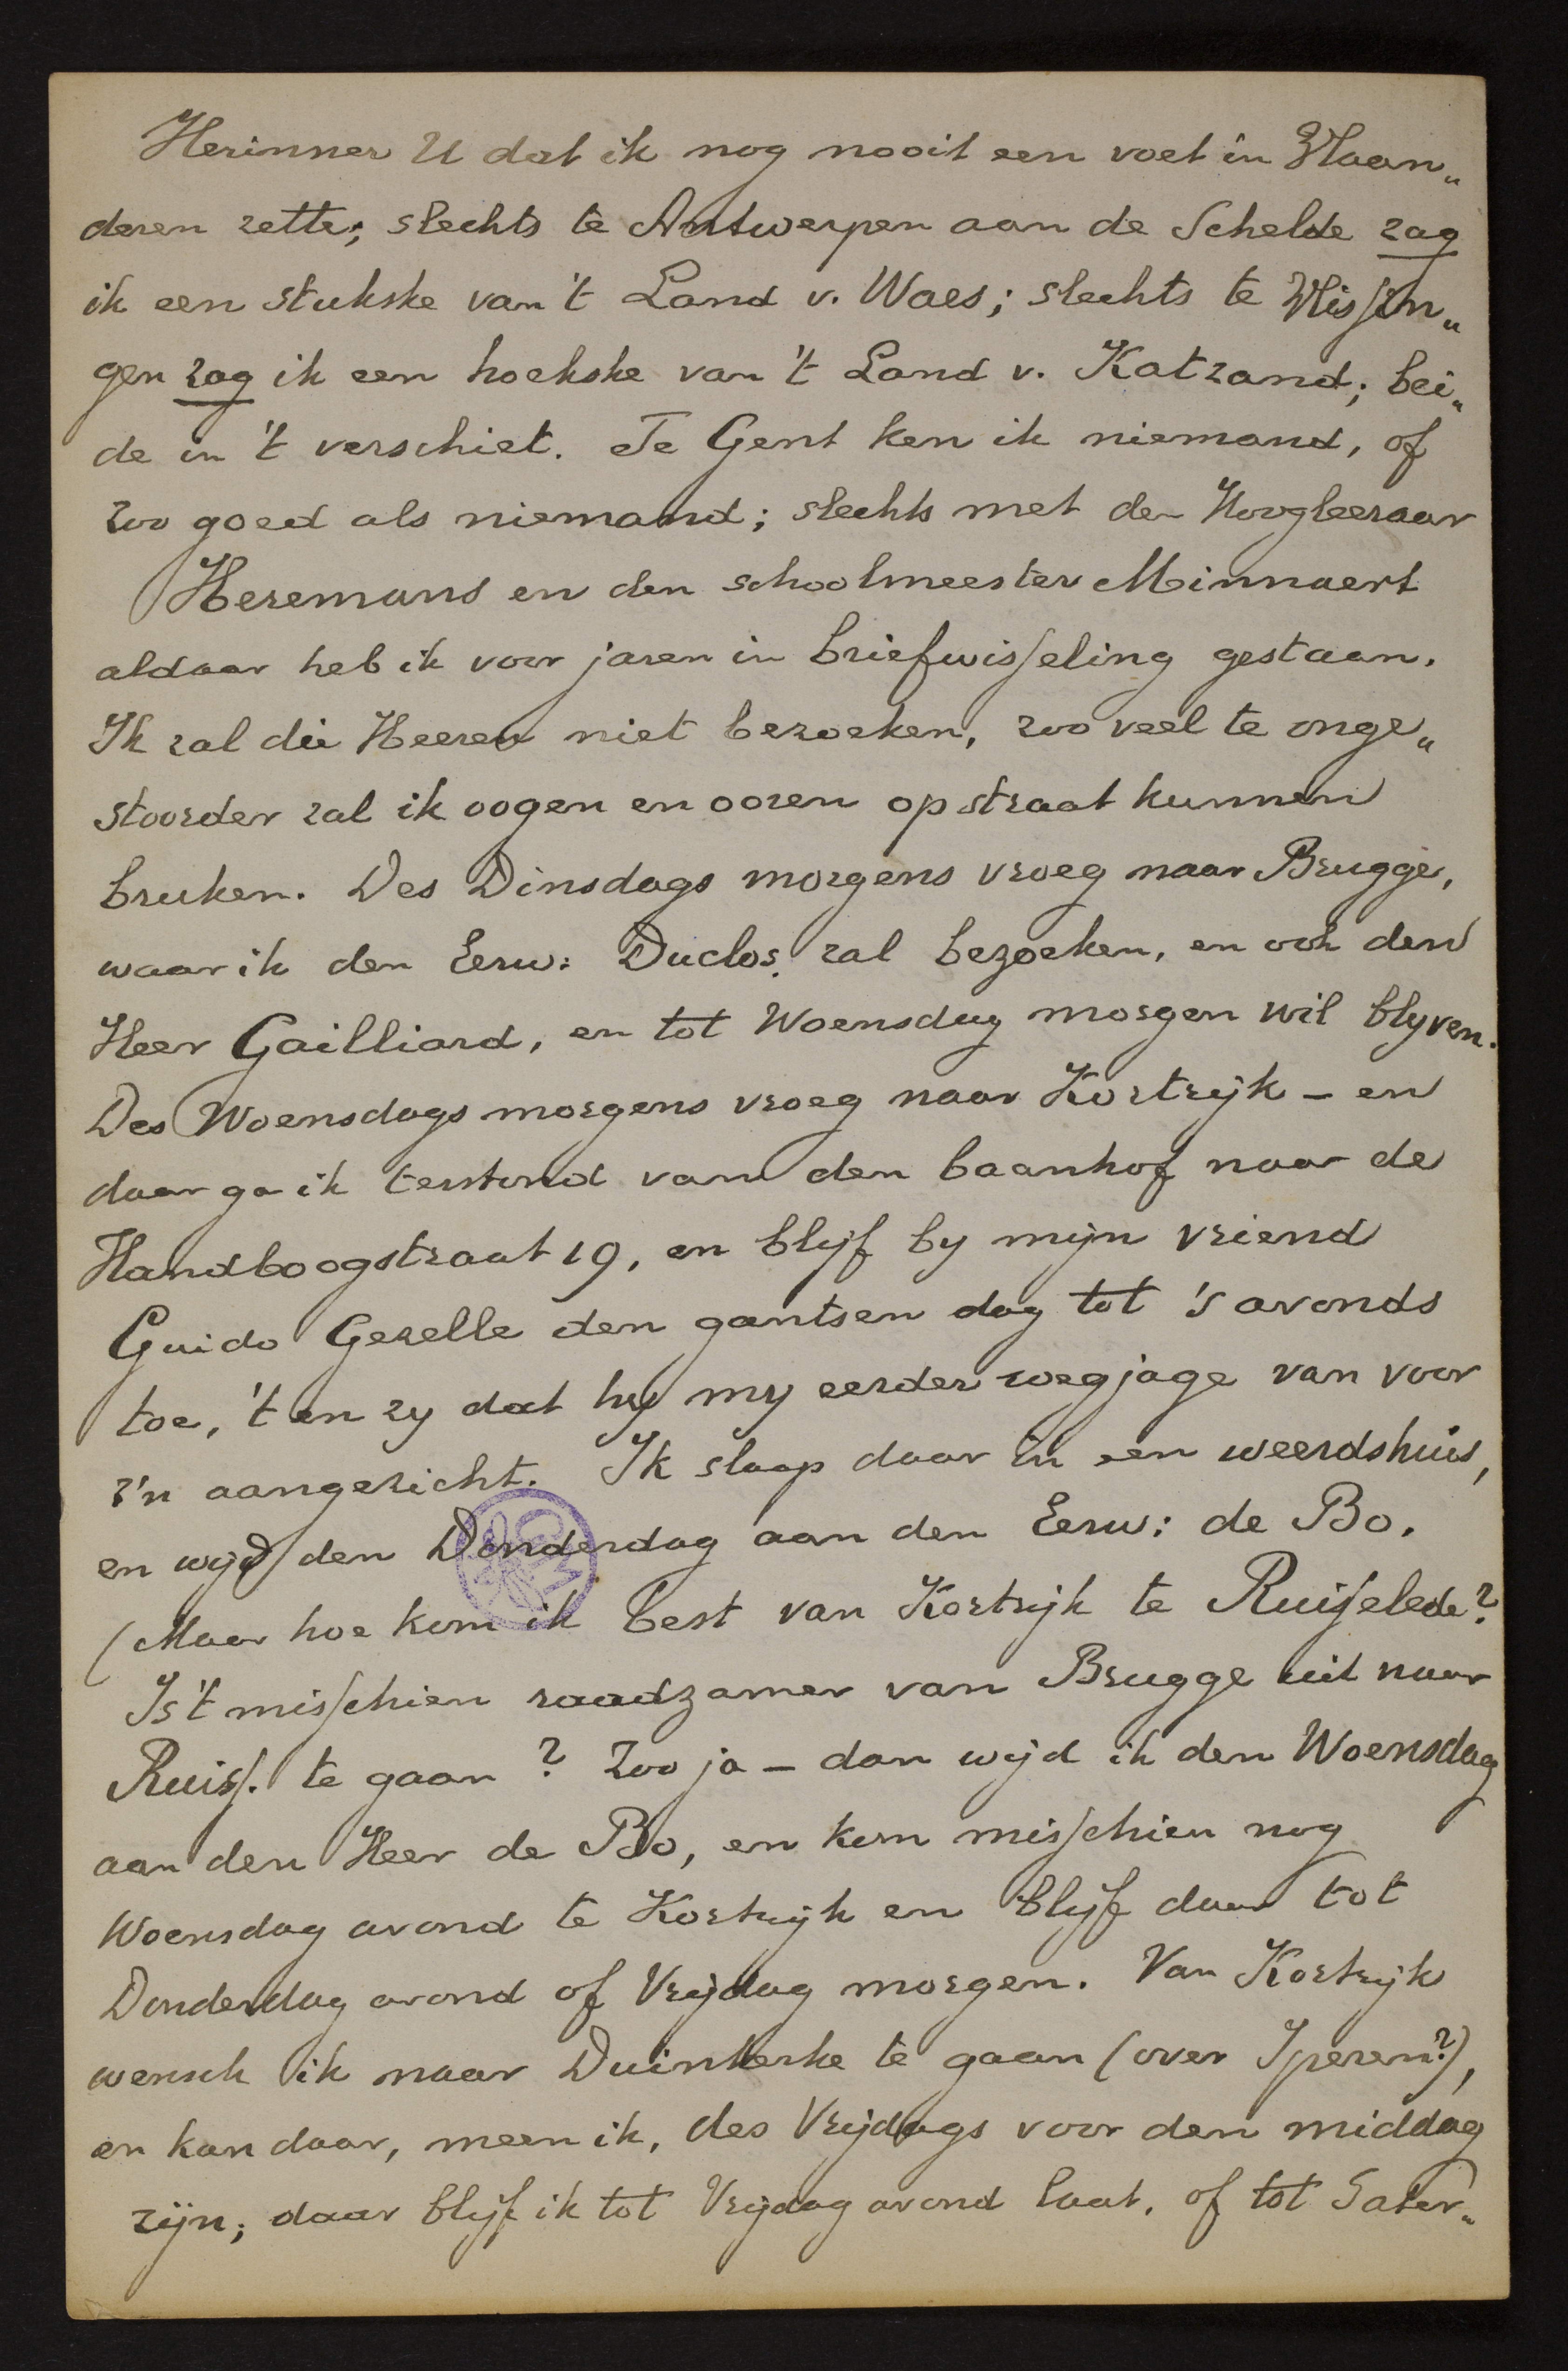 Herinner U dat ik nog nooit een voet in Vlaan„
deren zette; slechts te Antwerpen aan de Schelde zag
ik een stukske van 't Land v. Waes; slechts te Vlissin„
gen zag ik een hoekske van 't Land v. Katzand; bei„
de in 't verschiet. Te Gent ken ik niemand, of
zoo goed als niemand; slechts met den Hoogleeraar
Heremans en den schoolmeester Minnaert
aldaar heb ik voor jaren in briefwisseling gestaan.
Ik zal die Heeren niet bezoeken, zoo veel te onge„
stoorder zal ik oogen en ooren op straat kunnen
bruken. Des Dinsdags morgens vroeg naar Brugge,
waar ik den Eerw: Duclos zal bezoeken, en ook den
Heer Gailliard, en tot Woensdag morgen wil blyven.
Des Woensdags morgens vroeg naar Kortrijk – en
daar ga ik terstond van den baanhof naar de
Handboogstraat 19, en blijf by mijn vriend
Guido Gezelle den gantsen dag tot 's avonds
toe, 't en zy dat hy my eerder wegjage van voor
z'n aangezicht. Ik slaap daar in een weerdshuis,
en wijd den Donderdag aan den Eerw: de Bo.
(Maar hoe kom ik best van Kortrijk te Ruisselede?
Is 't misschien raadzamer van Brugge uit naar
Ruiss. te gaan? Zoo ja – dan wijd ik den Woensdag
aan den Heer de Bo, en kom misschien nog
Woensdag avond te Kortrijk en blijf daar tot
Donderdag avond of Vrijdag morgen. Van Kortrijk
wensch ik naar Duinkerke te gaan (over Iperen?),
en kan daar, meen ik, des Vrijdags voor den middag
zijn; daar blijf ik tot Vrijdag avond laat, of tot Sater„